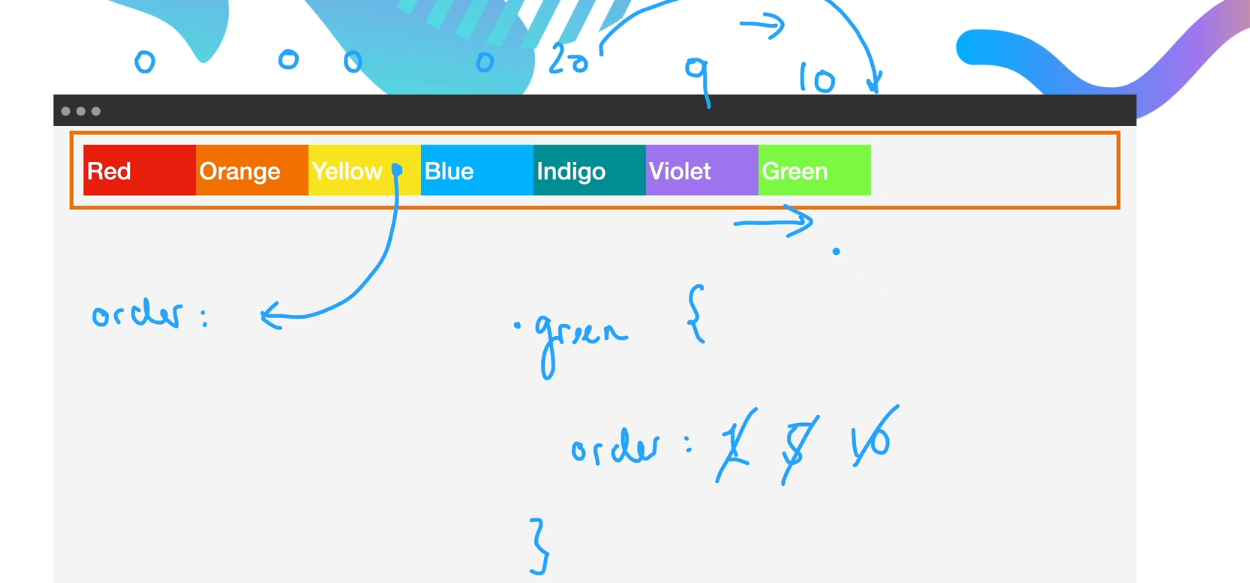 0 0 0 0 20 9 10
Red Orange Yellow Blue Indigo Violet Green
order :
.green {
order : 1 5 10
}